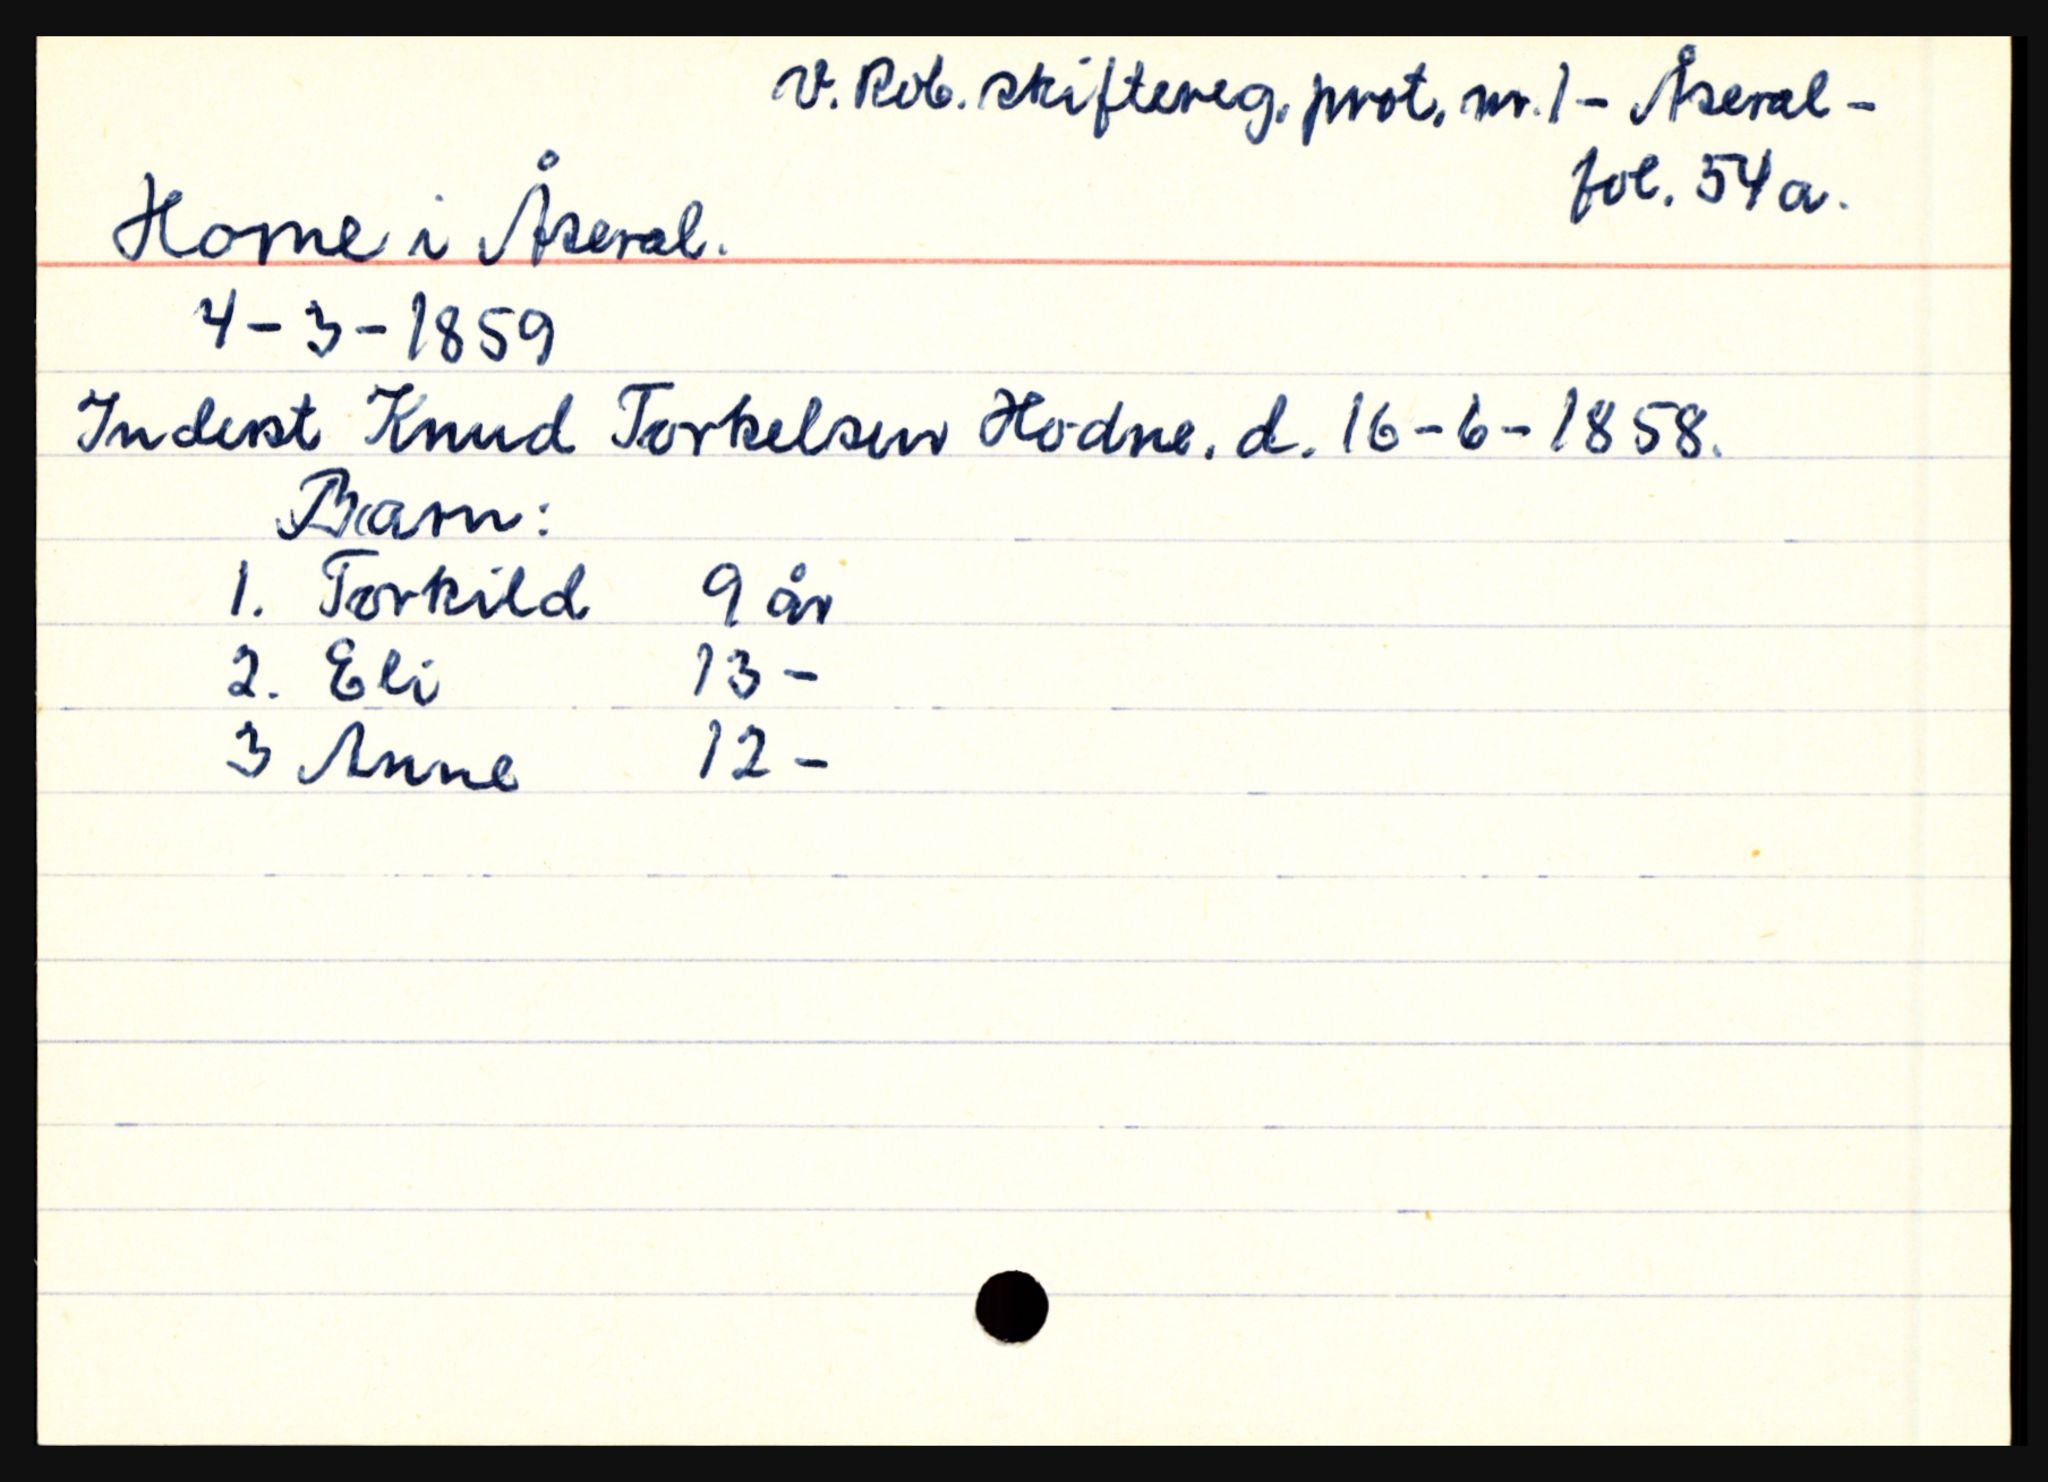 V. Rob. skiftereg. prot. nr. 1 - Åseral -
fol. 54a.
Horne i Åseral.
4 - 3 - 1859
Inderst Knud Torkelsen Hodne. d. 16 - 6 - 1858.
Barn:
1. Torkild 9 år
2. Eli 13 -
3 Anne 12 -